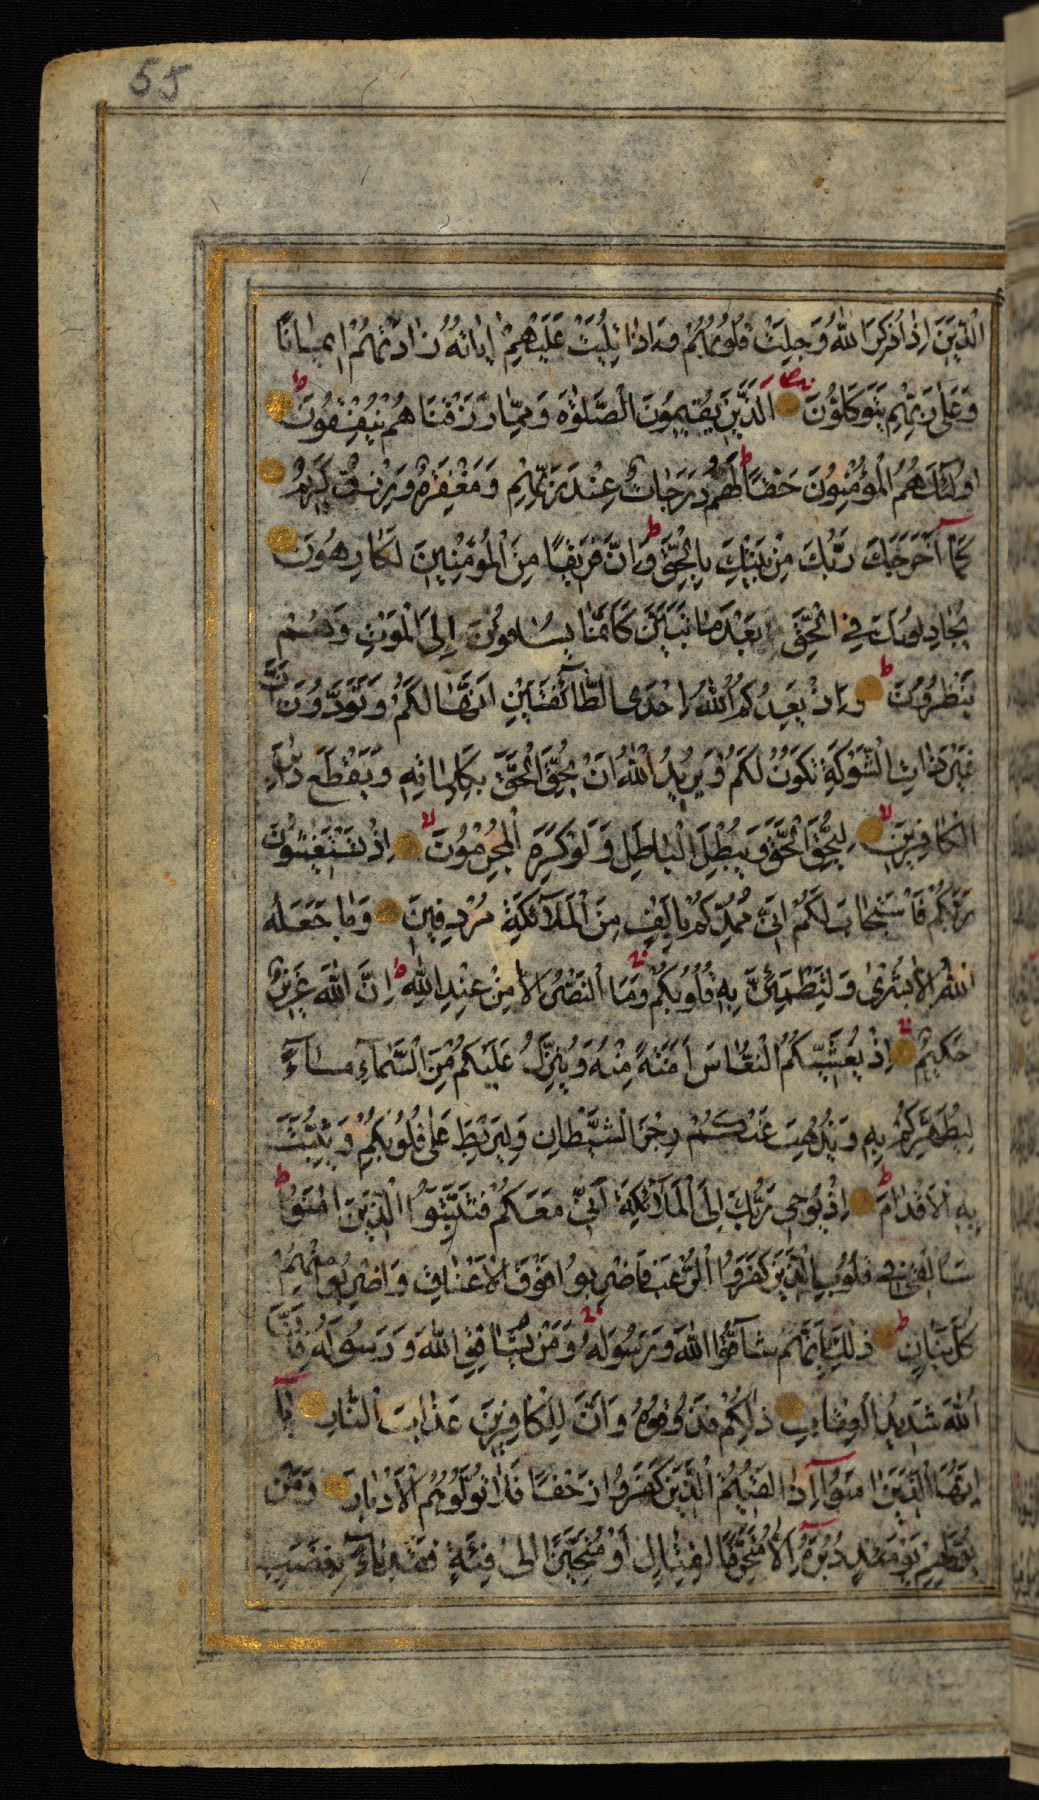 55
الَّذِينَ إِذَا ذُكِرَ اللَّهُ وَجِلَتْ قُلُوبُهُمْ وَإِذَا تُلِيَتْ عَلَيْهِمْ اٰيَاتُهُ زَادَتْهُمْ إِيمَانًا
وَعَلَىٰ رَبِّهِمْ يَتَوَكَّلُونَ الَّذِينَ يُقِيمُونَ الصَّلٰوةَ وَمِمَّا رَزَقْنَاهُمْ يُنْفِقُونَ ط
أُولٰئِكَ هُمُ الْمُؤْمِنُونَ حَقًّا ط لَهُمْ دَرَجَاتٌ عِنْدَ رَبِّهِمْ وَمَغْفِرَةٌ وَرِزْقٌ كَرِيمٌ
كَمَآ أَخْرَجَكَ رَبُّكَ مِنْ بَيْتِكَ بِالْحَقِّ ط وَإِنَّ فَرِيقًا مِنَ الْمُؤْمِنِينَ لَكَارِهُونَ
يُجَادِلُونَكَ فِي الْحَقِّ بَعْدَ مَا تَبَيَّنَ كَأَنَّمَا يُسَاقُونَ إِلَى الْمَوْتِ وَهُمْ
يَنْظُرُونَ ط وَإِذْ يَعِدُكُمُ اللَّهُ إِحْدَى الطَّآئِفَتَيْنِ أَنَّهَا لَكُمْ وَتَوَدُّونَ أَنَّ
غَيْرَ ذَاتِ الشَّوْكَةِ تَكُونُ لَكُمْ وَيُرِيدُ اللَّهُ أَنْ يُحِقَّ الْحَقَّ بِكَلِمَاتِهِ وَيَقْطَعَ دَابِرَ
الْكَافِرِينَ لا لِيُحِقَّ الْحَقَّ وَيُبْطِلَ الْبَاطِلَ وَلَوْ كَرِهَ الْمُجْرِمُونَ لا إِذْ تَسْتَغِيثُونَ
رَبَّكُمْ فَاسْتَجَابَ لَكُمْ أَنِّي مُمِدُّكُمْ بِأَلْفٍ مِنَ الْمَلَآئِكَةِ مُرْدِفِينَ وَمَا جَعَلَهُ
اللَّهُ إِلَّا بُشْرَىٰ وَلِتَطْمَئِنَّ بِهِ قُلُوبُكُمْ وَمَا النَّصْرُ إِلَّا مِنْ عِنْدِ اللَّهِ ط إِنَّ اللَّهَ عَزِيزٌ
حَكِيمٌ إِذْ يُغَشِّيكُمُ النُّعَاسَ أَمَنَةً مِنْهُ وَيُنَزِّلُ عَلَيْكُمْ مِنَ السَّمَآءِ مَآءً
لِيُطَهِّرَكُمْ بِهِ وَيُذْهِبَ عَنْكُمْ رِجْزَ الشَّيْطَانِ وَلِيَرْبِطَ عَلَىٰ قُلُوبِكُمْ وَيُثَبِّتَ
بِهِ الْأَقْدَامَ ط إِذْ يُوحِي رَبُّكَ إِلَى الْمَلَآئِكَةِ أَنِّي مَعَكُمْ فَثَبِّتُوا الَّذِينَ اٰمَنُوا ط
سَأُلْقِي فِي قُلُوبِ الَّذِينَ كَفَرُوا الرُّعْبَ فَاضْرِبُوا فَوْقَ الْأَعْنَاقِ وَاضْرِبُوا مِنْهُمْ
كُلَّ بَنَانٍ ط ذٰلِكَ بِأَنَّهُمْ شَآقُّوا اللَّهَ وَرَسُولَهُ وَمَنْ يُشَاقِقِ اللَّهَ وَرَسُولَهُ فَإِنَّ
اللَّهَ شَدِيدُ الْعِقَابِ ذٰلِكُمْ فَذُوقُوهُ وَأَنَّ لِلْكَافِرِينَ عَذَابَ النَّارِ يَآ
أَيُّهَا الَّذِينَ اٰمَنُوا إِذَا لَقِيتُمُ الَّذِينَ كَفَرُوا زَحْفًا فَلَا تُوَلُّوهُمُ الْأَدْبَارَ وَمَنْ
يُوَلِّهِمْ يَوْمَئِذٍ دُبُرَهُ إِلَّا مُتَحَرِّفًا لِقِتَالٍ أَوْ مُتَحَيِّزًا إِلَىٰ فِئَةٍ فَقَدْ بَآءَ بِغَضَبٍ